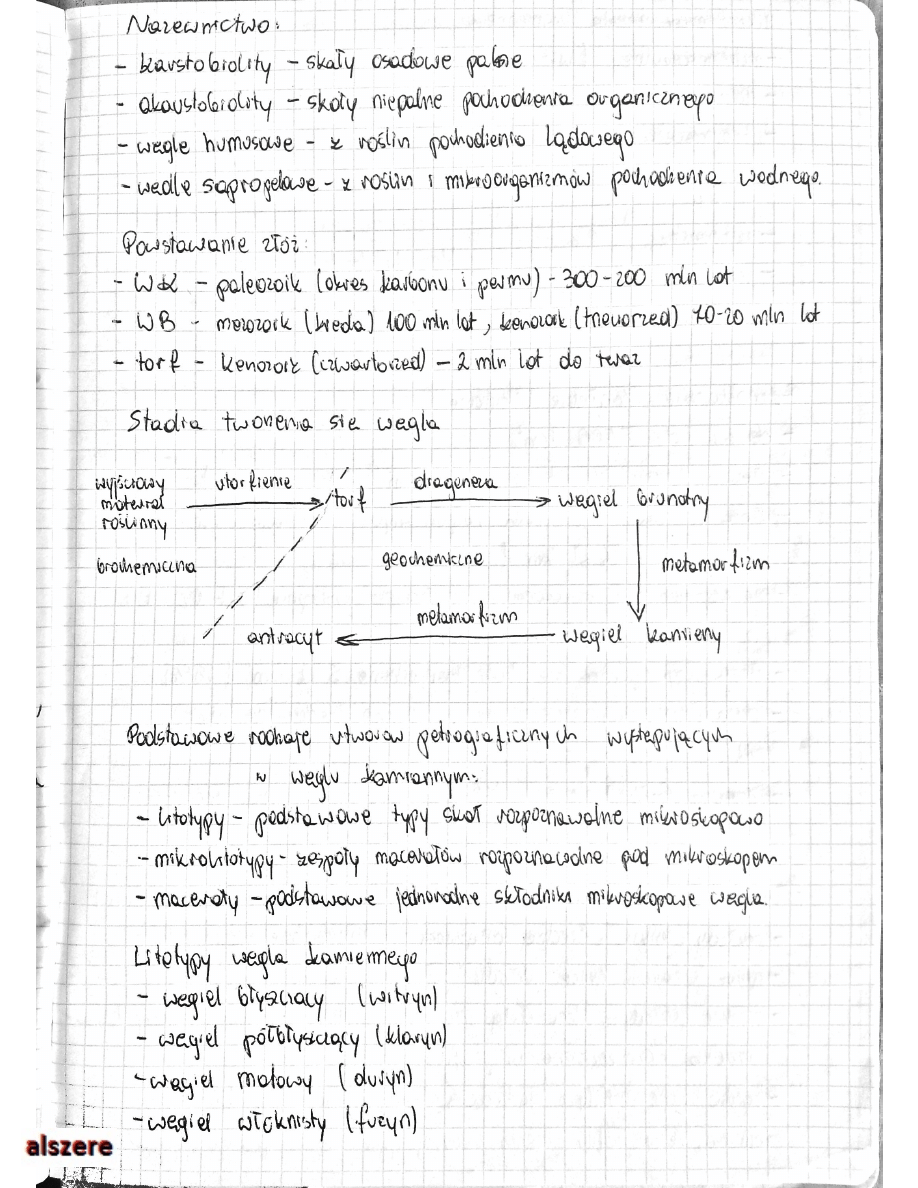 Nazewnictwo:
- kaustobiolity - skały osadowe palne
- akaustobiolity - skały niepalne pochodzenia organicznego
- węgle humusowe - z roślin pochodzenia lądowego
- wedle sapropelowe - z roślin i mikroorganizmów pochodzenia wodnego.
Powstawanie złóż:
- WK - paleozoik (okres karbonu i permu) - 300-200 mln lat
- WB - mezozoik (kreda) 100 mln lat, kenozoik (trzeciorzęd) 70-20 mln lat
- torf - kenozoik (czwartorzęd) - 2 mln lat do teraz
Stadia tworzenia się węgla
wyjściowy
materiał
roślinny
utorfienie
torf
diageneza
węgiel brunatny
biochemiczna
geochemiczne
metamorfizm
antracyt
metamorfizm
węgiel kamieny
Podstawowe rodzaje utworów petrograficznych występujących
w węglu kamiennym:
- litotypy - podstawowe typy skał rozpoznawalne mikroskopowo
- mikrolitotypy - zespoły macerałów rozpoznawalne pod mikroskopem
- macerały - podstawowe jednorodne składniki mikroskopowe węgla.
Litotypy węgla kamiennego
- węgiel błyszczący (witryn)
- węgiel półbłyszczący (klaryn)
- węgiel matowy (duryn)
- węgiel włóknisty (fuzyn)
alszere